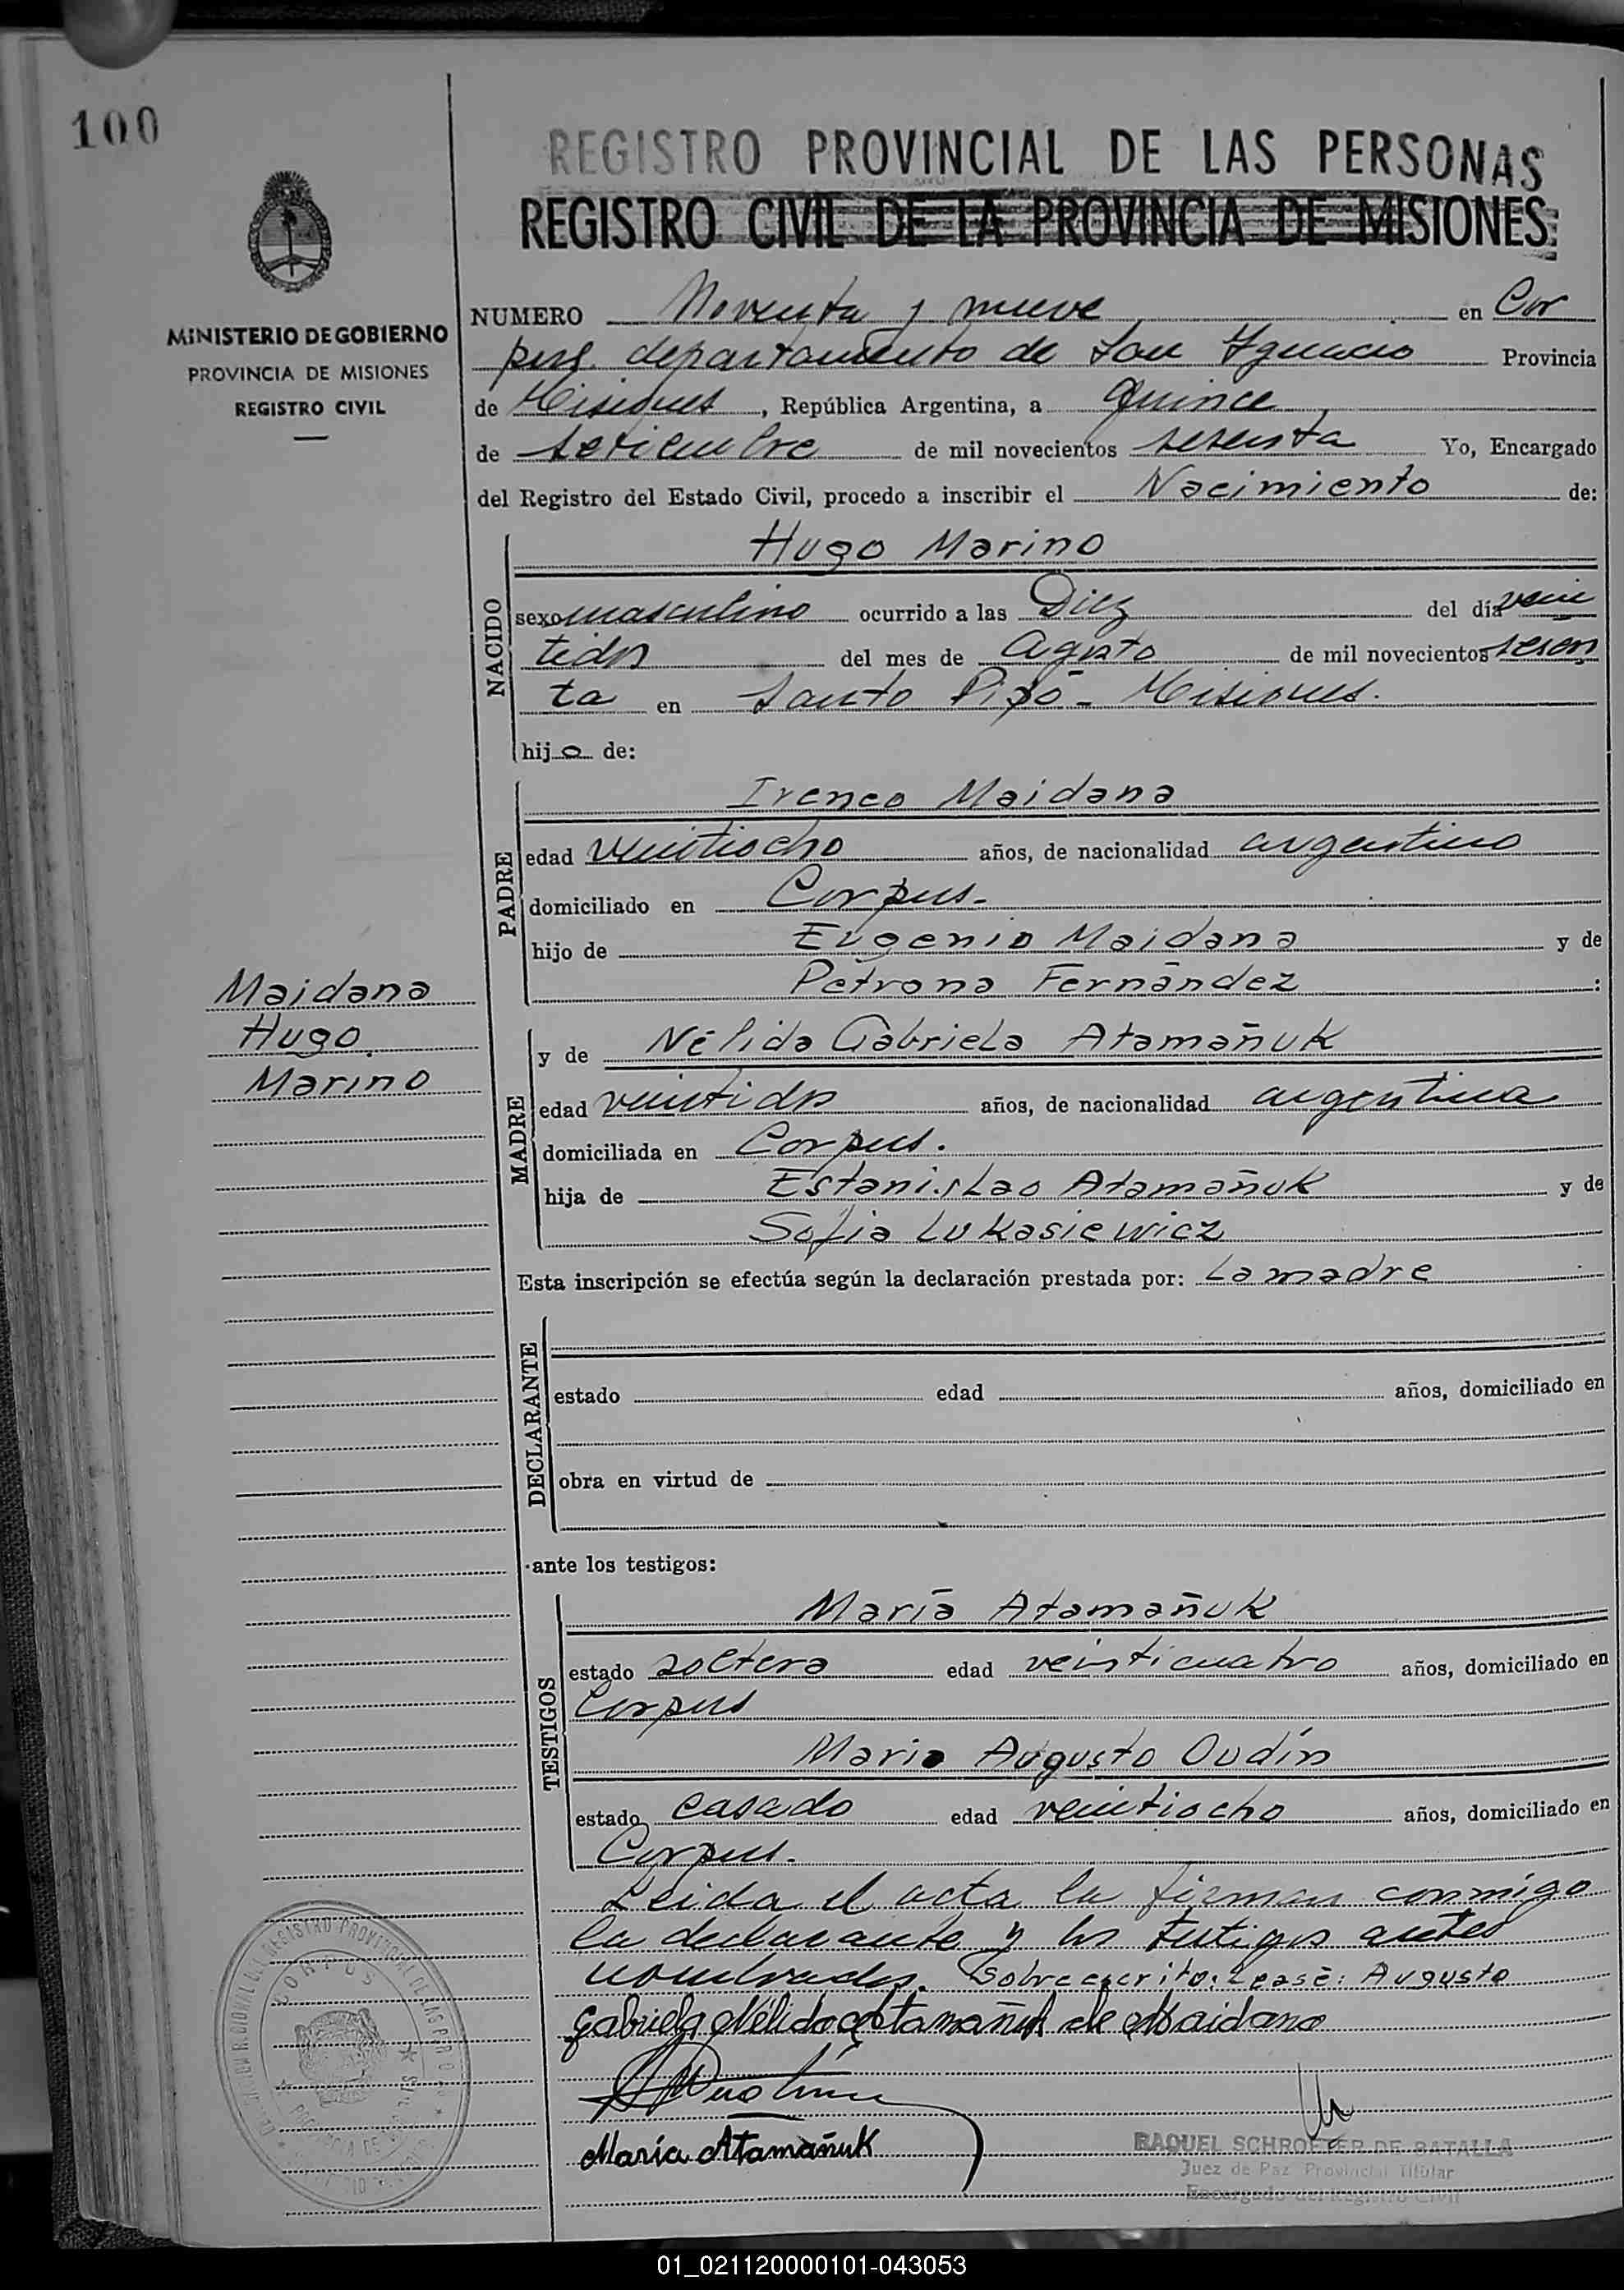 100
REGISTRO PROVINCIAL DE LAS PERSONAS
REGISTRO CIVIL DE LA PROVINCIA DE MISIONES
MINISTERIO DE GOBIERNO
PROVINCIA DE MISIONES
REGISTRO CIVIL
NUMERO Noventa y nueve en Cor
pus departamento de San Ignacio Provincia
de Misiones, República Argentina, a Quince
de setiembre de mil novecientos sesenta Yo, Encargado
del Registro del Estado Civil, procedo a inscribir el Nacimiento de:
NACIDO
Hugo Marino
sexo masculino ocurrido a las Diez del día vein
tidos del mes de Agosto de mil novecientos sesen
ta en Santo Pipó - Misiones.
hijo de:
PADRE
Ireneo Maidana
edad veintiocho años, de nacionalidad argentino
domiciliado en Corpus.-
hijo de Eugenio Maidana y de
Petrona Fernández :
Maidana
Hugo
Marino
MADRE
y de Nélida Gabriela Atamañuk
edad veintidos años, de nacionalidad argentina
domiciliada en Corpus.
hija de Estanislao Atamañuk y de
Sofia Lukasiewicz
Esta inscripción se efectúa según la declaración prestada por: La madre
DECLARANTE
estado edad años, domiciliado en
obra en virtud de
ante los testigos:
TESTIGOS
María Atamañuk
estado soltera edad veinticuatro años, domiciliado en
Corpus
Mario Augusto Oudín
estado casado edad veintiocho años, domiciliado en
Corpus.-
Leida el acta la firman conmigo
la declarante y los testigos antes
nombrados. Sobreescrito: Lease: Augusto
Gabriela Nélida Atamañuk de Maidana
María Atamañuk
RAQUEL SCHROETER DE BATALLA
Juez de Paz Provincial Titular
Encargado del Registro Civil
CORPUS
01_021120000101-043053